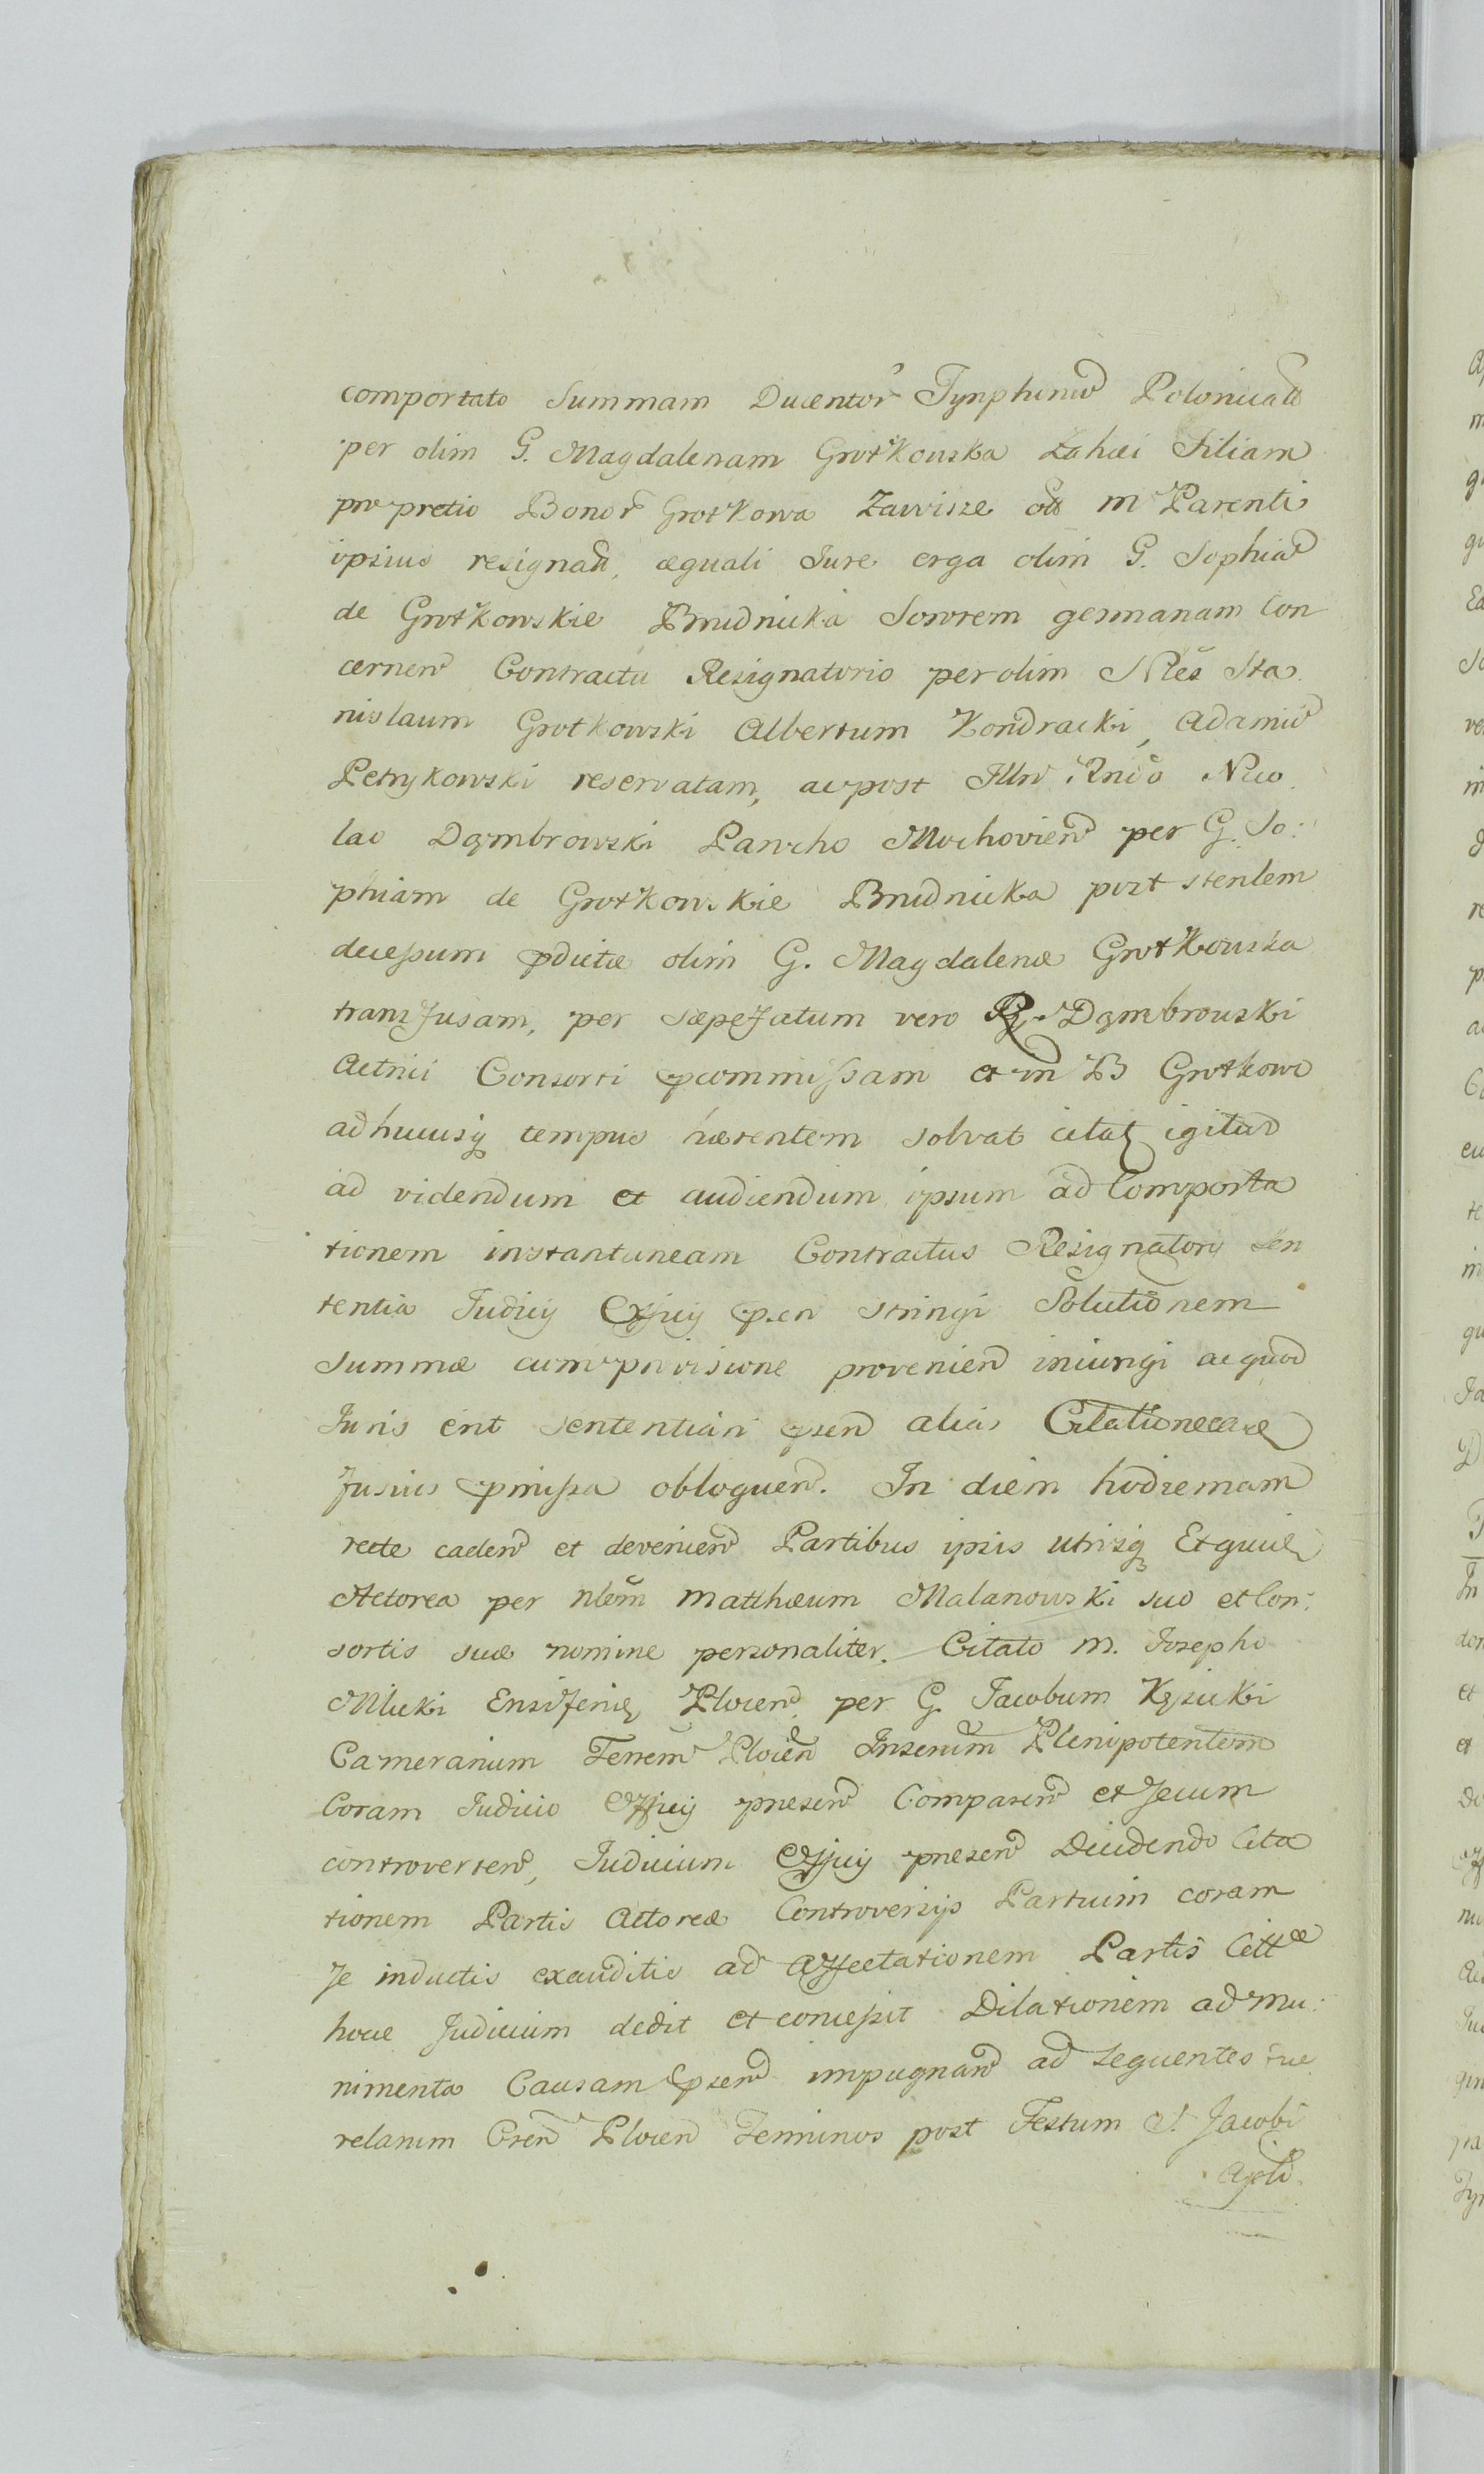 comportato Summam Ducentor Tynphonu Polonical
per olim G. Magdalenam Grotkowska Zahæi Filiam
pro pretio Bonor Grotkowa Zawisze M Parenti
ipsius resignati, æquali Jure erga olim G. Sophia
de Grotkowskie Brudnicka Sororem germanam Con
cernen Contractu Resignatorio per olim Nles Sta
nislaum Grotkowski Albertum Kondracki, Adamu
Petrykowski reservatam, ac post Illr Rndo Nico
lao Dąmbrowski Parocho Mochovien per G. So:
phiam de Grotkowskie Brudnicka post sterilem
decessum pdictæ olim G. Magdalenæ Grotkowska
transfusam, per sæpefatum vero R. Dąmbrowski
Actrici Consorti pcommissam et in B Grotkowo
adhucusq tempus hærentem solvat citat igitur
ad videndum et audiendum ipsum ad Comporta
tionem instantaneam Contractus Resignatorij Sen
tentia Judicij Officij psen stringi Solutionem
Summæ cum provisione provenien iniungi ac quod
Juris erit sententiari psen alias Citatione
fusius pmissa obloquen. In diem hodiernam
recte caden et devenien Partibus ipsis utrisq Et quid
Actorea per Nlem Matthæum Malanowski suo et Con:
sortis suæ nomine personaliter. Citato M. Josepho
Mlicki Ensifero Plocen per G. Jacobum Kęsicki
Camerarium Terrem Plocen Inserium Plenipotentem
Coram Judicio Officij præsen Comparen et secum
controverten, Judicium Officij præsen Decidendo Cita
tionem Partis Actoreæ Controversijs Partium coram
se inductis exauditis ad Affectationem Partis Cittæ
hocce Judicium dedit et concessit Dilationem ad mu:
nimenta Causam psen impugnan ad sequentes que
relarum Cren Plocen Terminos post Festum S. Jacobi
Apli.